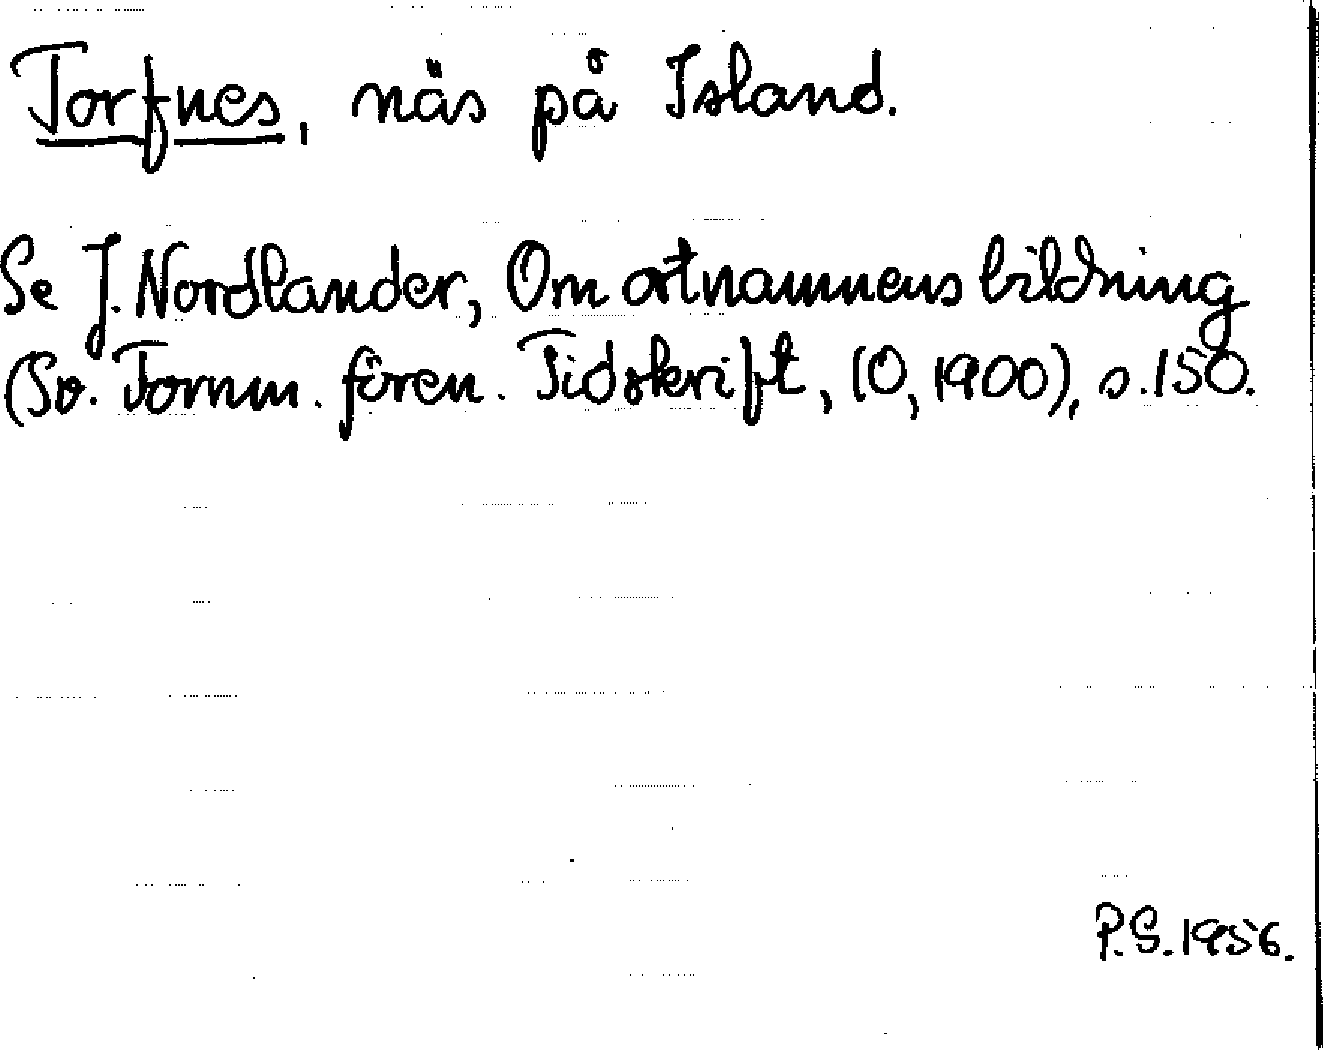 Torfnes, näs på Island.
Se J. Nordlander, Om ortnamnens bildning
(Sv. Fornm. fören. Tidskrift, 10, 1900), s. 150.
P.S. 1956.